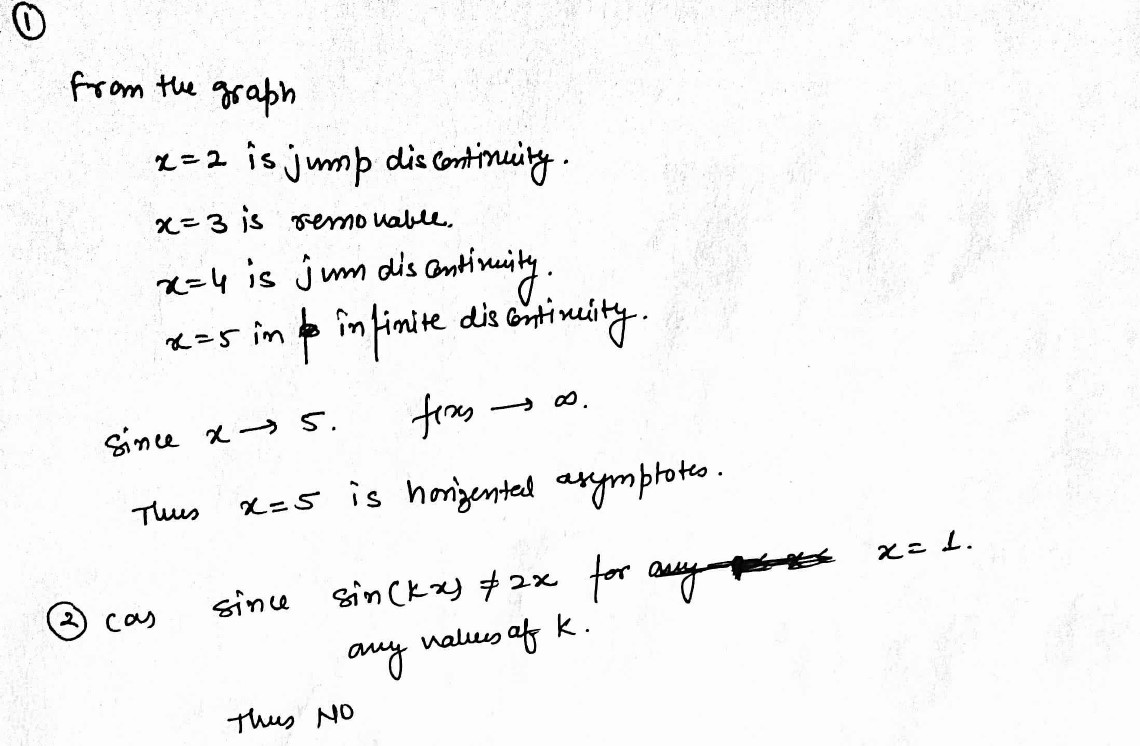 ①
from the graph
x=2 is jump discontinuity.
x=3 is removable.
x=4 is jum discontinuity.
x=5 in infinite discontinuity.
since x → 5. f(x) → ∞.
Thus x=5 is horizental asymptotes.
② (a) since sin(kx) ≠ 2x for any x = 1.
any values of k.
Thus NO